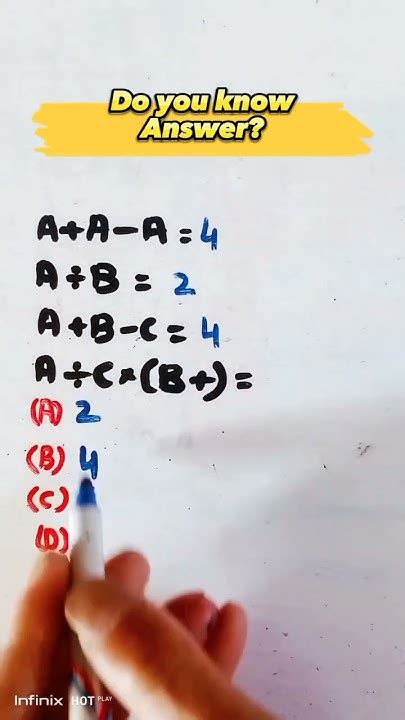 Do you know
Answer?
A+A-A=4
A÷B=2
A+B-C=4
A÷C×(B+)=
(A) 2
(B) 4
(C)
(D)
Infinix HOT PLAY